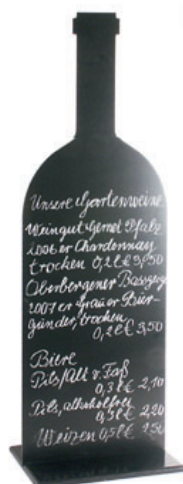 Unsere Gartenweine
Weingut Gernet Pfalz
2006er Chardonnay
trocken 0,2l € 3,50
Oberbergener Bassgeige
2007er Grauer Bur-
gunder, trocken
0,2l € 3,50
Biere
Pils/Alt v. Faß
0,3l € 2,10
Pils, alkoholfrei
0,5l € 2,20
Weizen 0,5l €